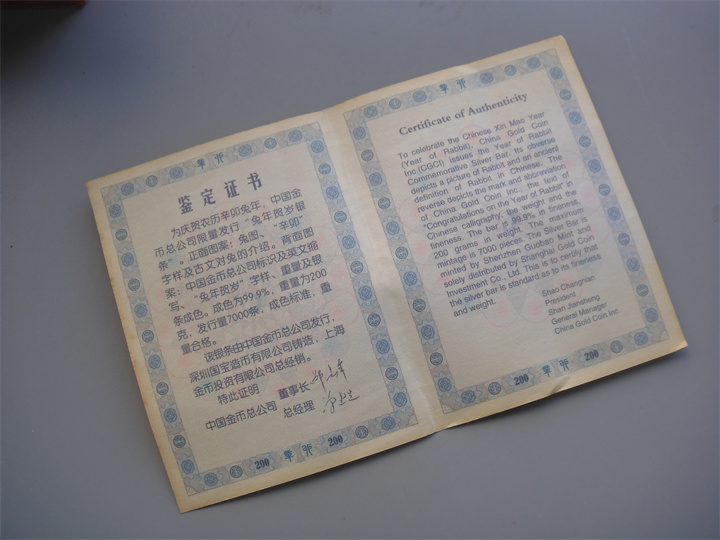 鉴定证书
为庆贺农历辛卯兔年，中国金
币总公司限量发行“兔年贺岁银
条”。正面图案：兔图、“辛卯”
字样及古文对兔的介绍。背面图
案：中国金币总公司标识及英文缩
写、“兔年贺岁”字样、重量及银
条成色。成色为99.9%，重量为200
克，发行量7000条，成色标准，重
量合格。
该银条由中国金币总公司发行，
深圳国宝造币有限公司铸造，上海
金币投资有限公司总经销。
特此证明
董事长
中国金币总公司 总经理
200 200
Certificate of Authenticity
To celebrate the Chinese Xin Mao Year
(Year of Rabbit), China Gold Coin
Inc.(CGCI) issues the Year of Rabbit
Commemorative Silver Bar. Its obverse
depicts a picture of Rabbit and an ancient
definition of Rabbit in Chinese. The
reverse depicts the mark and abbreviation
of China Gold Coin Inc., the text of
"Congratulations on the Year of Rabbit" in
Chinese calligraphy, the weight and the
fineness. The bar is 99.9% in fineness,
200 grams in weight. The maximum
mintage is 7000 pieces. The Silver Bar is
minted by Shenzhen Guobao Mint and
solely distributed by Shanghai Gold Coin
Investment Co., Ltd. This is to certify that
the silver bar is standard as to its fineness
and weight.
Shao Changnian
President
Shan Jiansheng
General Manager
China Gold Coin Inc.
200 200